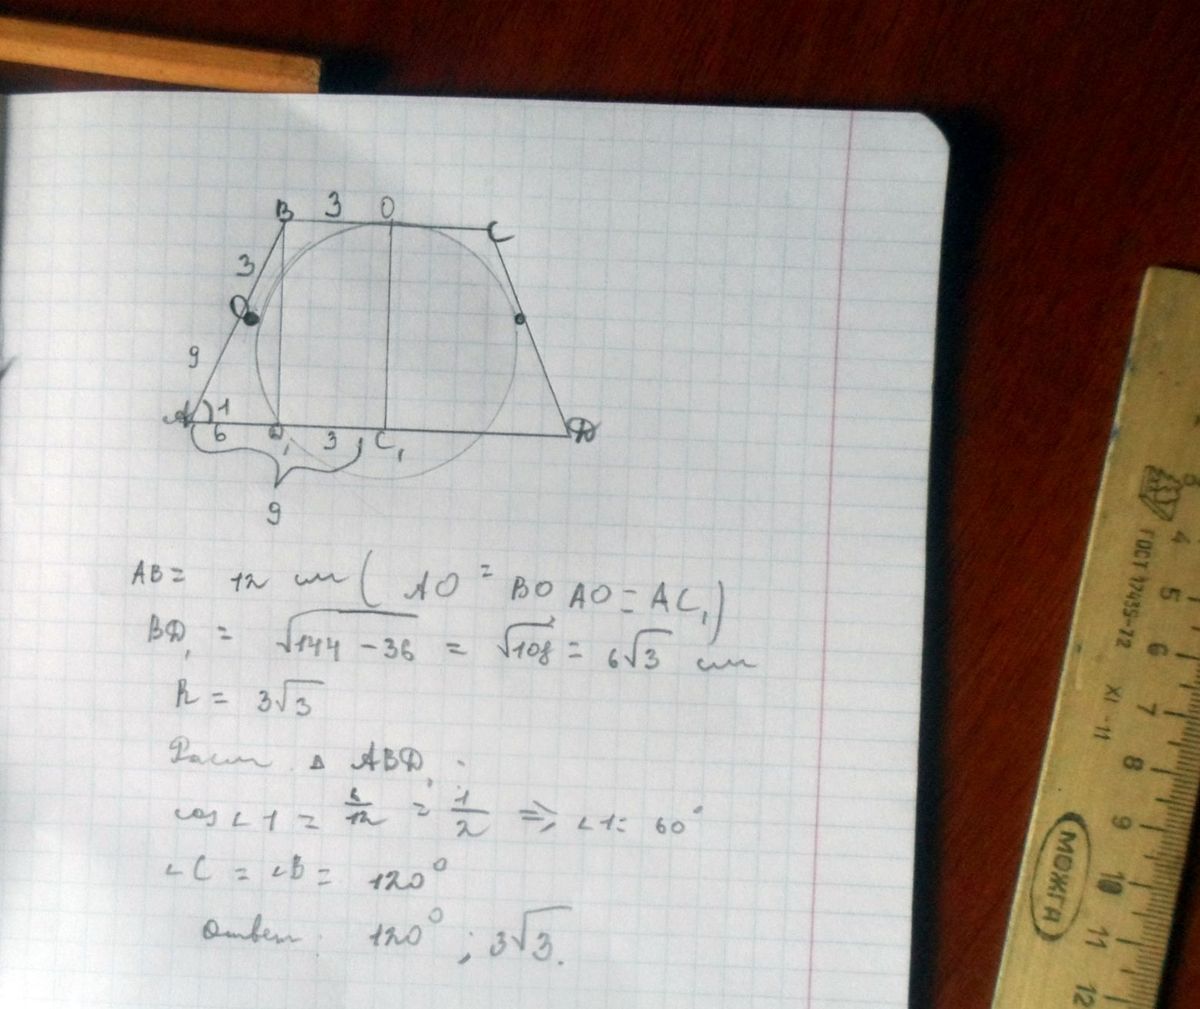 B 3 O
C
3
O
9
A 1
6 D₁ 3 C₁ D
9
AB = 12 см (AO = BO AO = AC₁)
BD₁ = √144 - 36 = √108 = 6√3 см
R = 3√3
Расм. △ ABD₁.
cos ∠1 = 6/12 = 1/2 ⇒ ∠1 = 60°
∠C = ∠B = 120°
Ответ. 120°; 3√3.
ГОСТ 17435-72 XI-11
МОЖГА
4
5
6
7
8
9
10
11
12